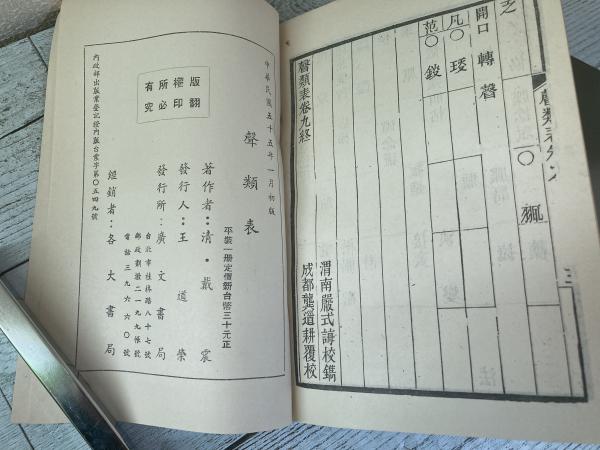 之
開口 轉聲
凡〇 㺂
范〇 錽
聲類表卷九終
渭南嚴式誨校鐫
成都龔道耕覆校
三
中華民國五十五年一月初版
聲類表
平裝一册定價新台幣三十元正
著作者：清・戴震
發行人：王道榮
發行所：廣文書局
台北市桂林路八十七號
郵政劃撥二一九九帳號
電話三九六六〇號
經銷者：各大書局
版權所有
翻印必究
內政部出版業登記證內版台業字第〇五四九號